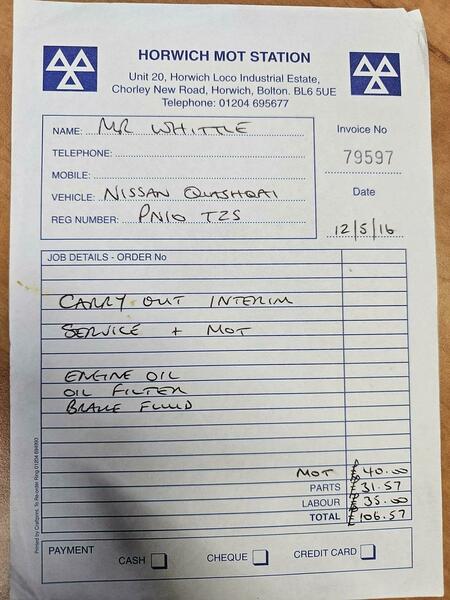 HORWICH MOT STATION
Unit 20, Horwich Loco Industrial Estate,
Chorley New Road, Horwich, Bolton. BL6 5UE
Telephone: 01204 695677
NAME: MR WHITTLE
TELEPHONE:
MOBILE:
VEHICLE: NISSAN QUASHQAI
REG NUMBER: PN10 TZS
Invoice No
79597
Date
12/5/16
JOB DETAILS - ORDER No
CARRY OUT INTERIM
SERVICE + MOT
ENGINE OIL
OIL FILTER
BRAKE FLUID
MOT £40.00
PARTS £31.57
LABOUR £35.00
TOTAL £106.57
PAYMENT CASH CHEQUE CREDIT CARD
Printed by Craftprint. To Re-order Ring 01204 694930